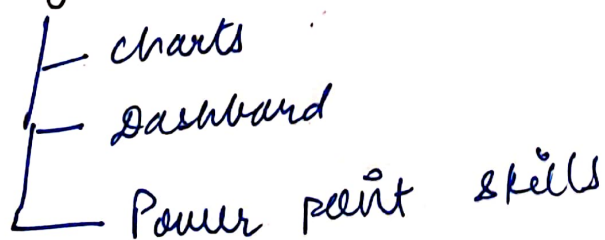 charts
Dashboard
Power point skills